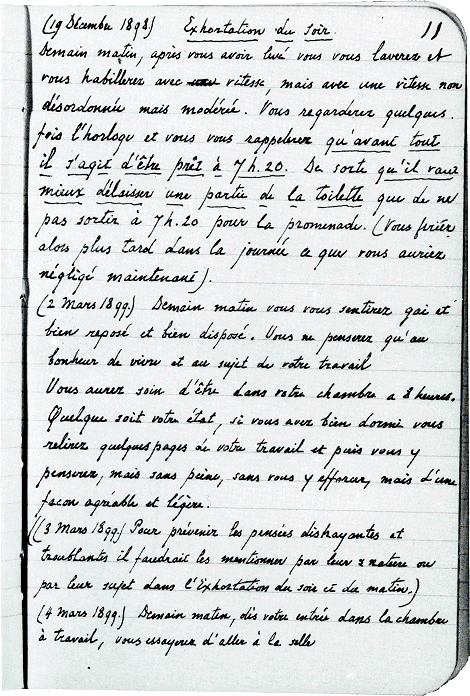 (19 Décembre 1898) Exhortation du Soir. 11
Demain matin, après vous avoir levé vous vous laverez et
vous habillerez avec une vitesse, mais avec une vitesse non
désordonnée mais modérée. Vous regarderez quelques-
fois l'horloge et vous vous rappelerez qu'avant tout
il s'agit d'être prêt à 7h.20. De sorte qu'il vaut
mieux délaisser une partie de la toilette que de ne
pas sortir à 7h.20 pour la promenade. (Vous feriez
alors plus tard dans la journée ce que vous auriez
négligé maintenant).
(2 Mars 1899) Demain matin vous vous sentirez gai et
bien reposé et bien disposé. Vous ne penserez qu'au
bonheur de vivre et au sujet de votre travail
Vous aurez soin d'être dans votre chambre a 8 heures.
Quelque soit votre état, si vous avez bien dormi vous
relirez quelques pages de votre travail et puis vous y
penserez, mais sans peine, sans vous y efforcer, mais d'une
façon agréable et légère.
((3 Mars 1899) Pour prévenir les pensées distrayantes et
troublantes il faudrait les mentionner par leur nature ou
par leur sujet dans l'Exhortation du soir et du matin.)
(4 Mars 1899) Demain matin, dès votre entrée dans la chambre
à travail, vous essayerez d'aller à la selle